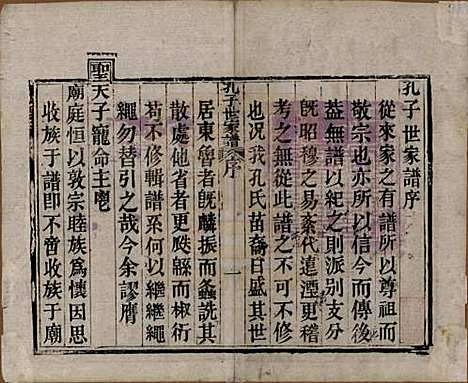 孔子世家譜序
從來家之有譜所以尊祖而
敬宗也亦所以信今而傳後
葢無譜以紀之則派别支分
旣昭穆之易紊代遠湮更稽
考之無從此譜之不可不修
也況我孔氏苗裔日盛其世
孔子世家譜 序 一
居東魯者旣麟振而螽詵其
散處他省者更瓞緜而椒衍
苟不修輯譜系何以繼繼繩
繩勿替引之哉今余謬膺
聖天子寵命主鬯
廟庭恒以敦宗睦族爲懷因思
收族于譜卽不啻收族于廟